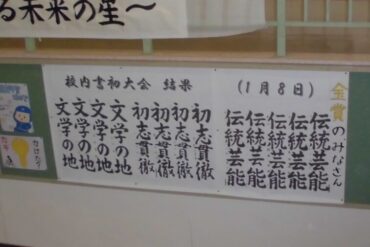 る未来の星〜
校内書初大会 結果 (1月8日)
金賞のみなさん
伝統芸能
伝統芸能
伝統芸能
伝統芸能
伝統芸能
初志貫徹
初志貫徹
初志貫徹
初志貫徹
文学の地
文学の地
文学の地
文学の地